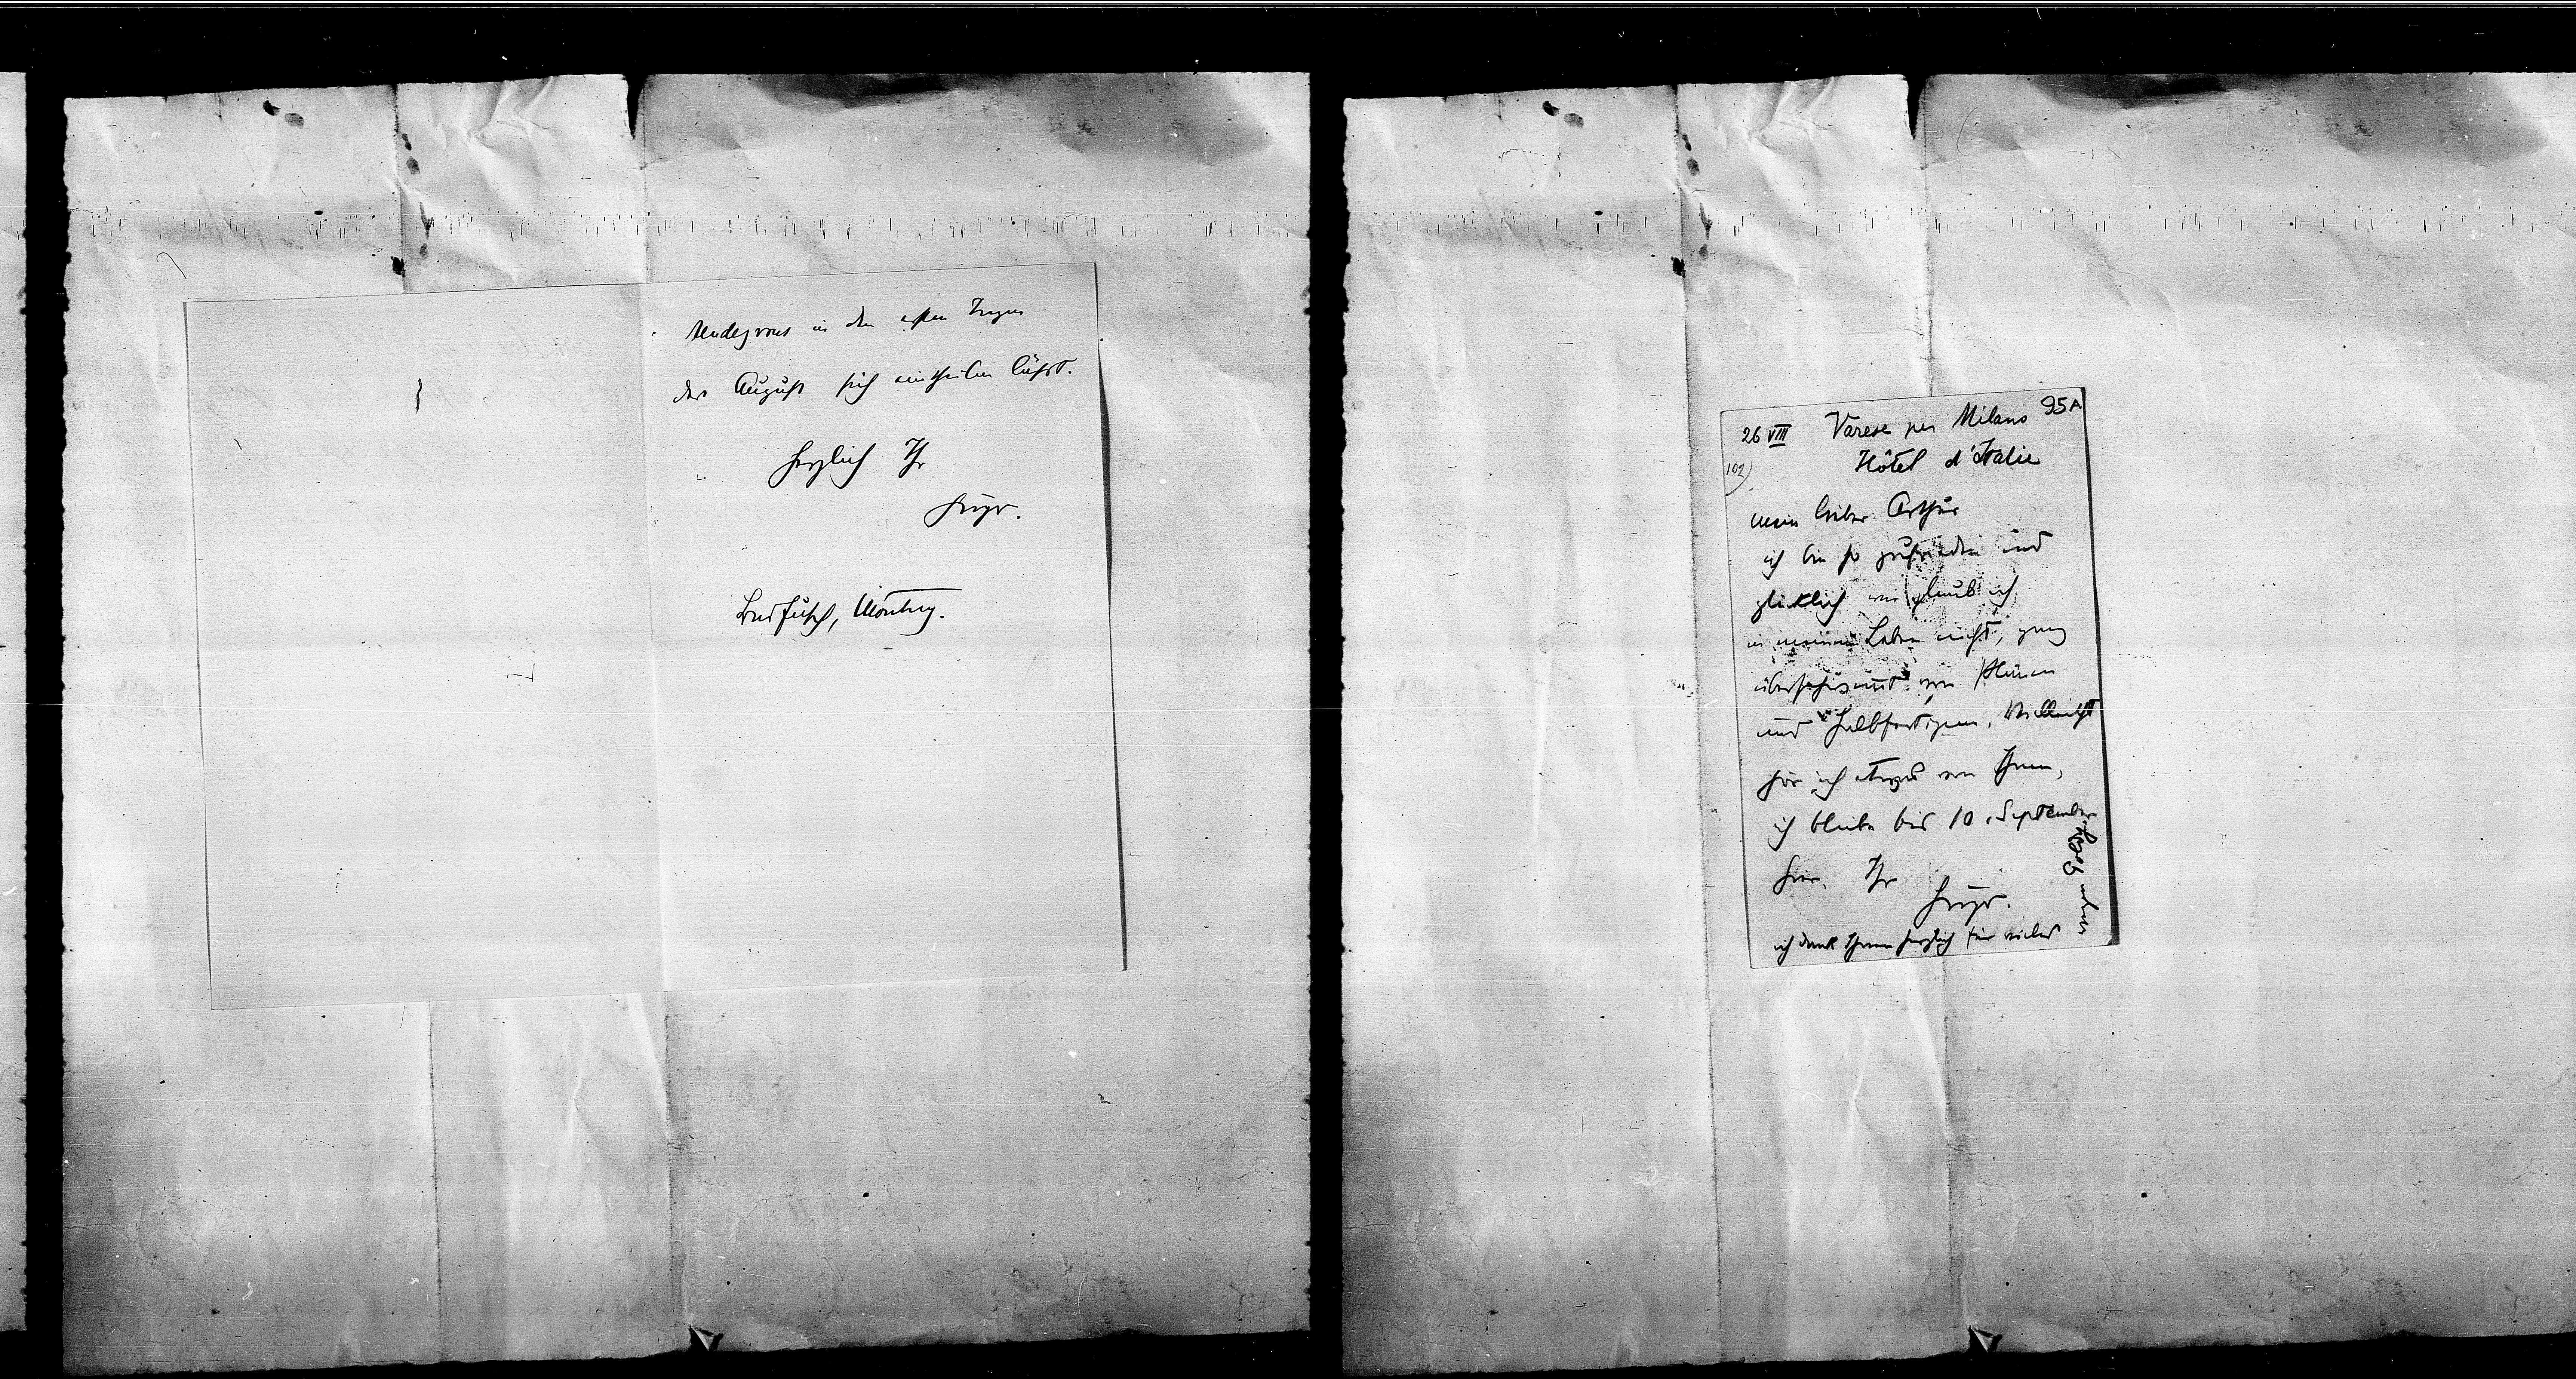 Rendezvous in den ersten Tagen
des August sich eintheilen läßt.
Herzlich Ihr
Hugo.
Bad Fusch, Montag.
95A
26 VIII Varese per Milano
102) Hôtel d'Italie
mein lieber Arthur
ich bin so zufrieden und
glücklich wie glaub ich
in meinem Leben nicht, ganz
überschwemmt von Plänen
und Halbfertigem. Vielleicht
hör ich etwas von Ihnen,
ich bleibe bis 10. September
hier. Ihr
Hugo.
ich dank Ihnen herzlich für vieles